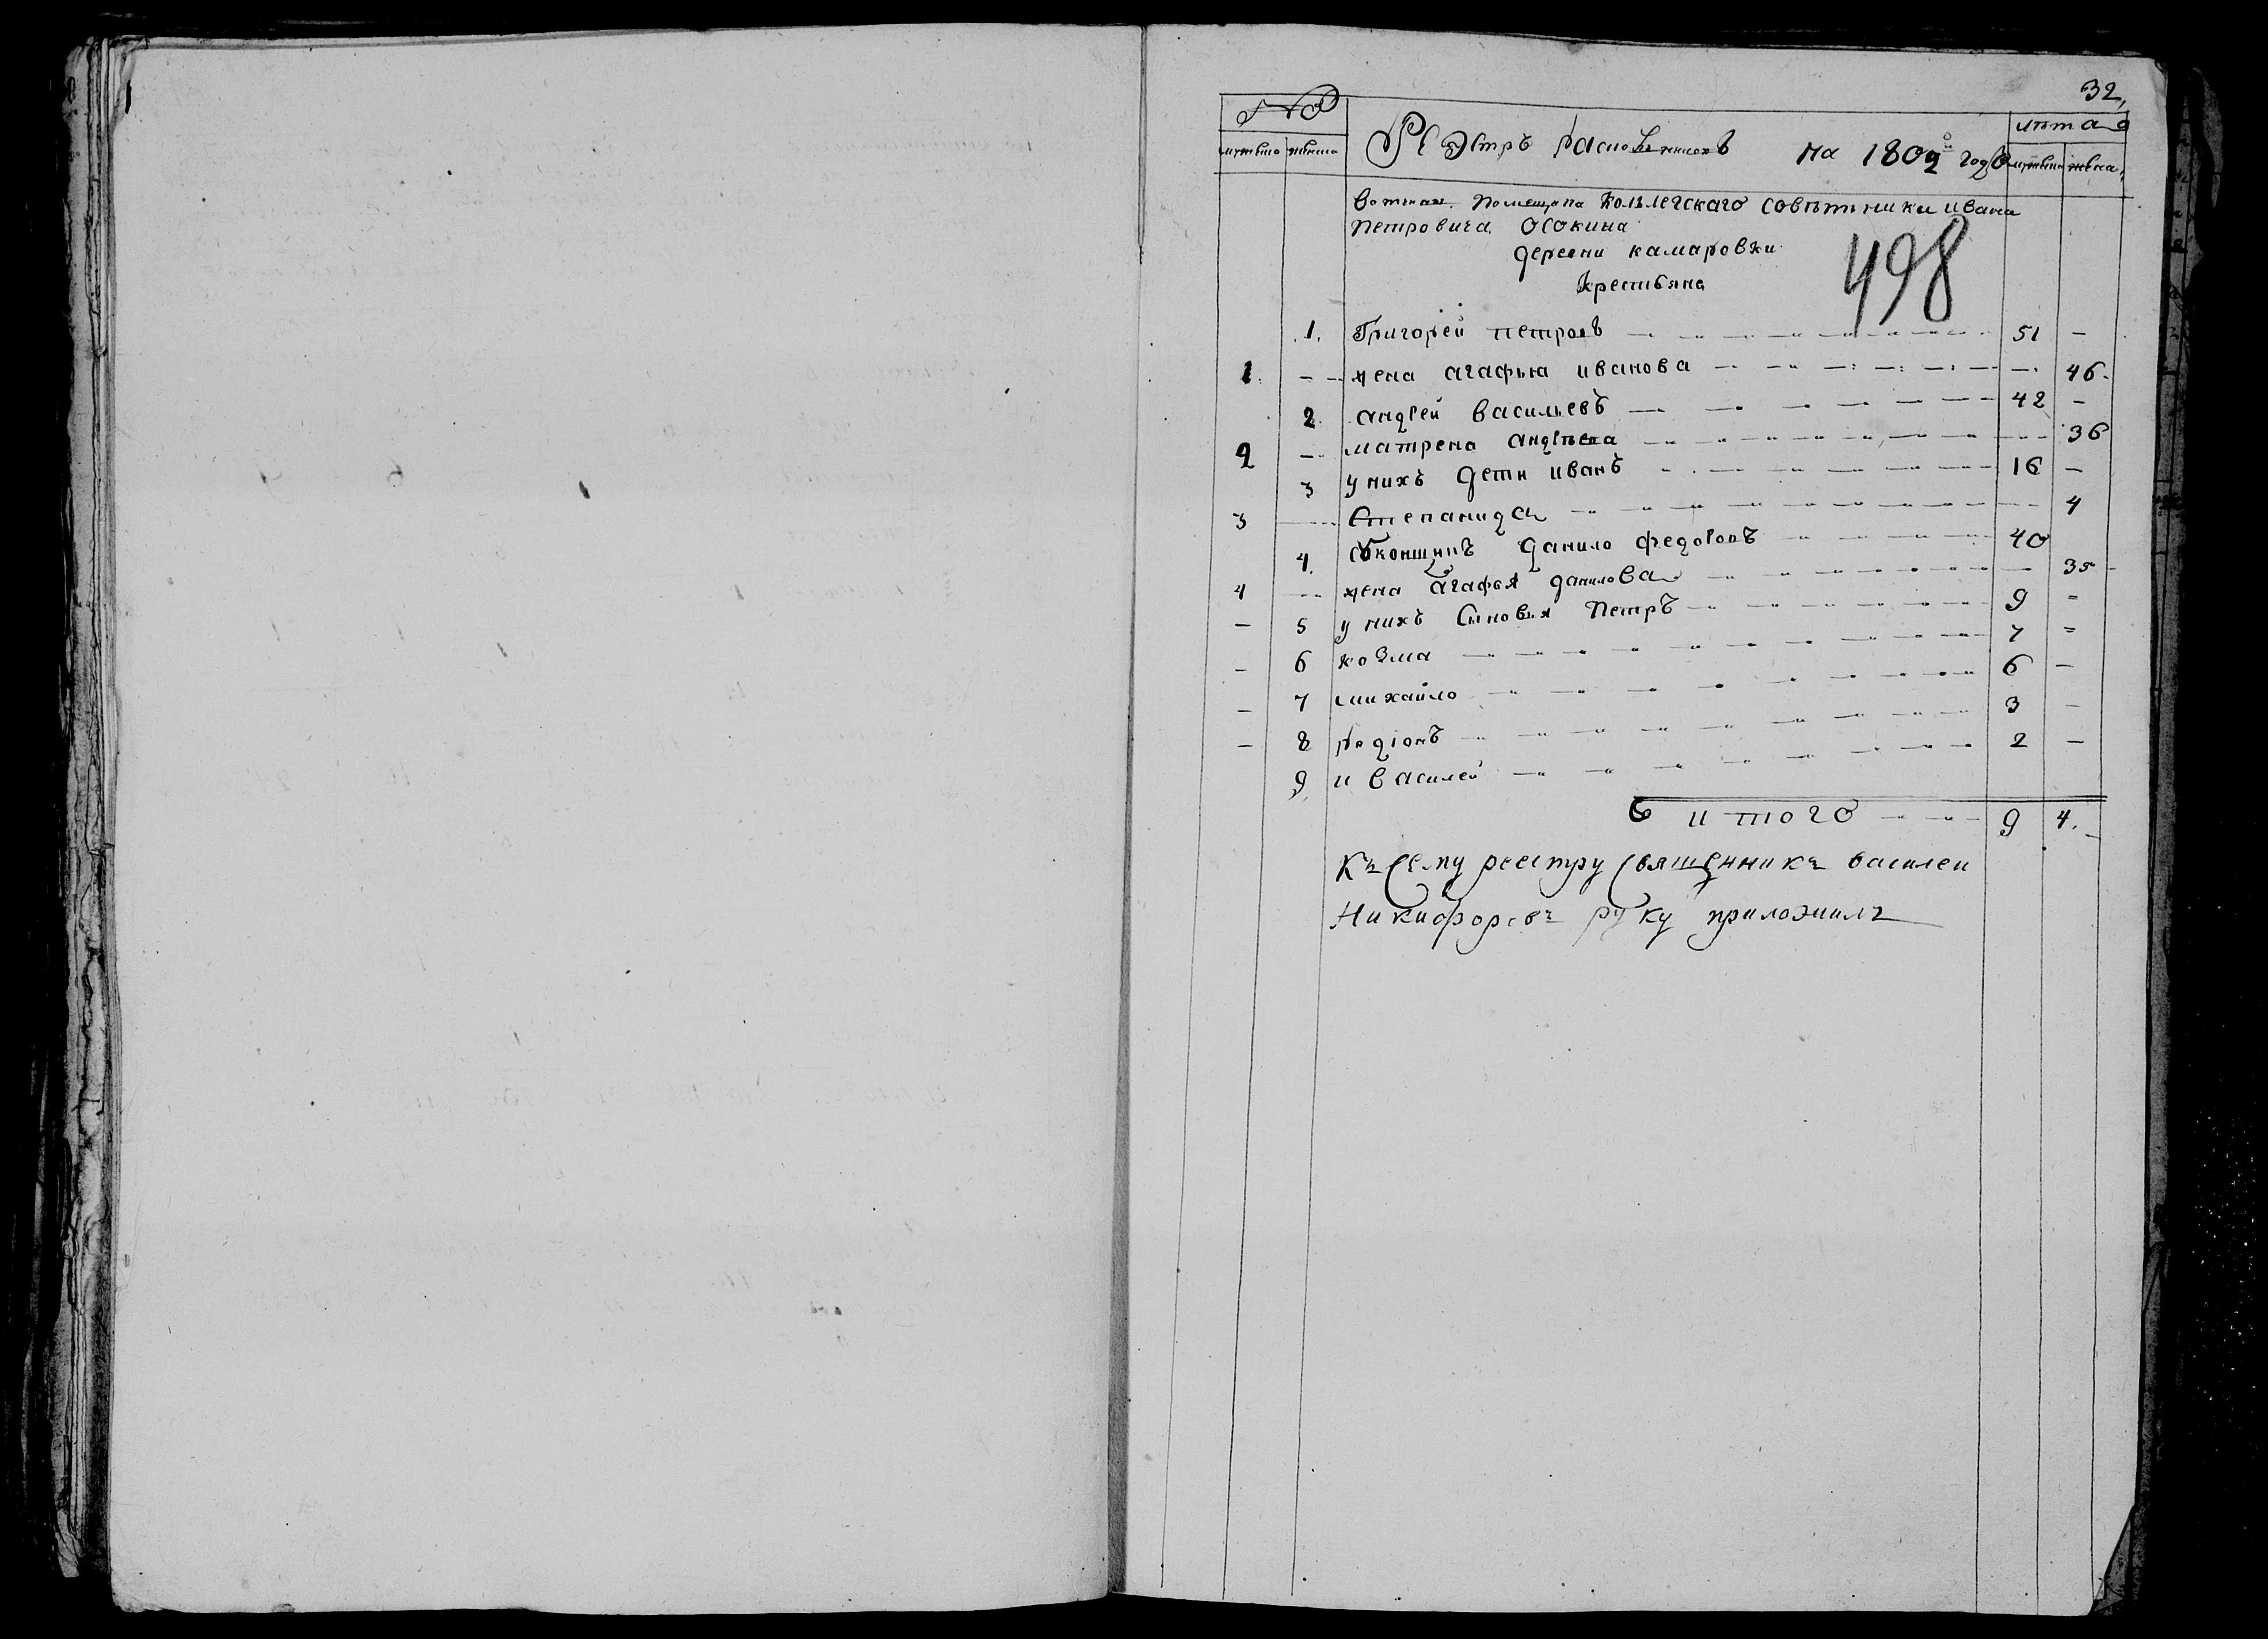 32,
№
лѣта
мужска женска
Реэстръ расколниковъ на 1802й годъ
мужска женска
вотчины помещика Коллегскаго советника ивана
Петровича Осокина
деревни камаровки
крестьяна
498
1. Григорей петровъ 51 —
1. — жена агафья иванова — 46.
2. андрей васильевъ 42 —
2 — матрена андреева — 36
3 у нихъ дети иванъ 16 —
3 — Степанида — 4
4. данило федоровъ 40
4 — жена агафья данилова — 35
— 5 у нихъ Сыновья Петръ 9 =
— 6 козма 7 =
— 7 михайло 6 —
— 8 родіонъ 3 —
9 и василей 2 —
итого 9 4.
Къ сему реестру священникъ василеи
Никифоровъ руку приложилъ